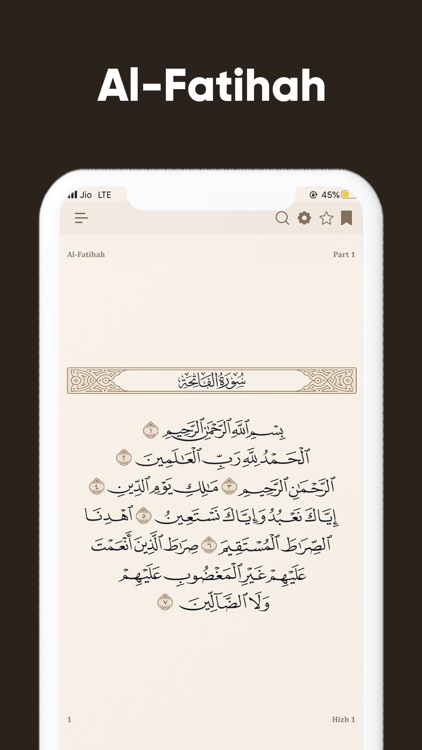 Al-Fatihah
Jio LTE 45%
Al-Fatihah Part 1
سُورَةُ الْفَاتِحَةِ
بِسْمِ ٱللَّهِ ٱلرَّحْمَٰنِ ٱلرَّحِيمِ ١
ٱلْحَمْدُ لِلَّهِ رَبِّ ٱلْعَٰلَمِينَ ٢
ٱلرَّحْمَٰنِ ٱلرَّحِيمِ ٣ مَٰلِكِ يَوْمِ ٱلدِّينِ ٤
إِيَّاكَ نَعْبُدُ وَإِيَّاكَ نَسْتَعِينُ ٥ ٱهْدِنَا
ٱلصِّرَٰطَ ٱلْمُسْتَقِيمَ ٦ صِرَٰطَ ٱلَّذِينَ أَنْعَمْتَ
عَلَيْهِمْ غَيْرِ ٱلْمَغْضُوبِ عَلَيْهِمْ
وَلَا ٱلضَّآلِّينَ ٧
1 Hizb 1